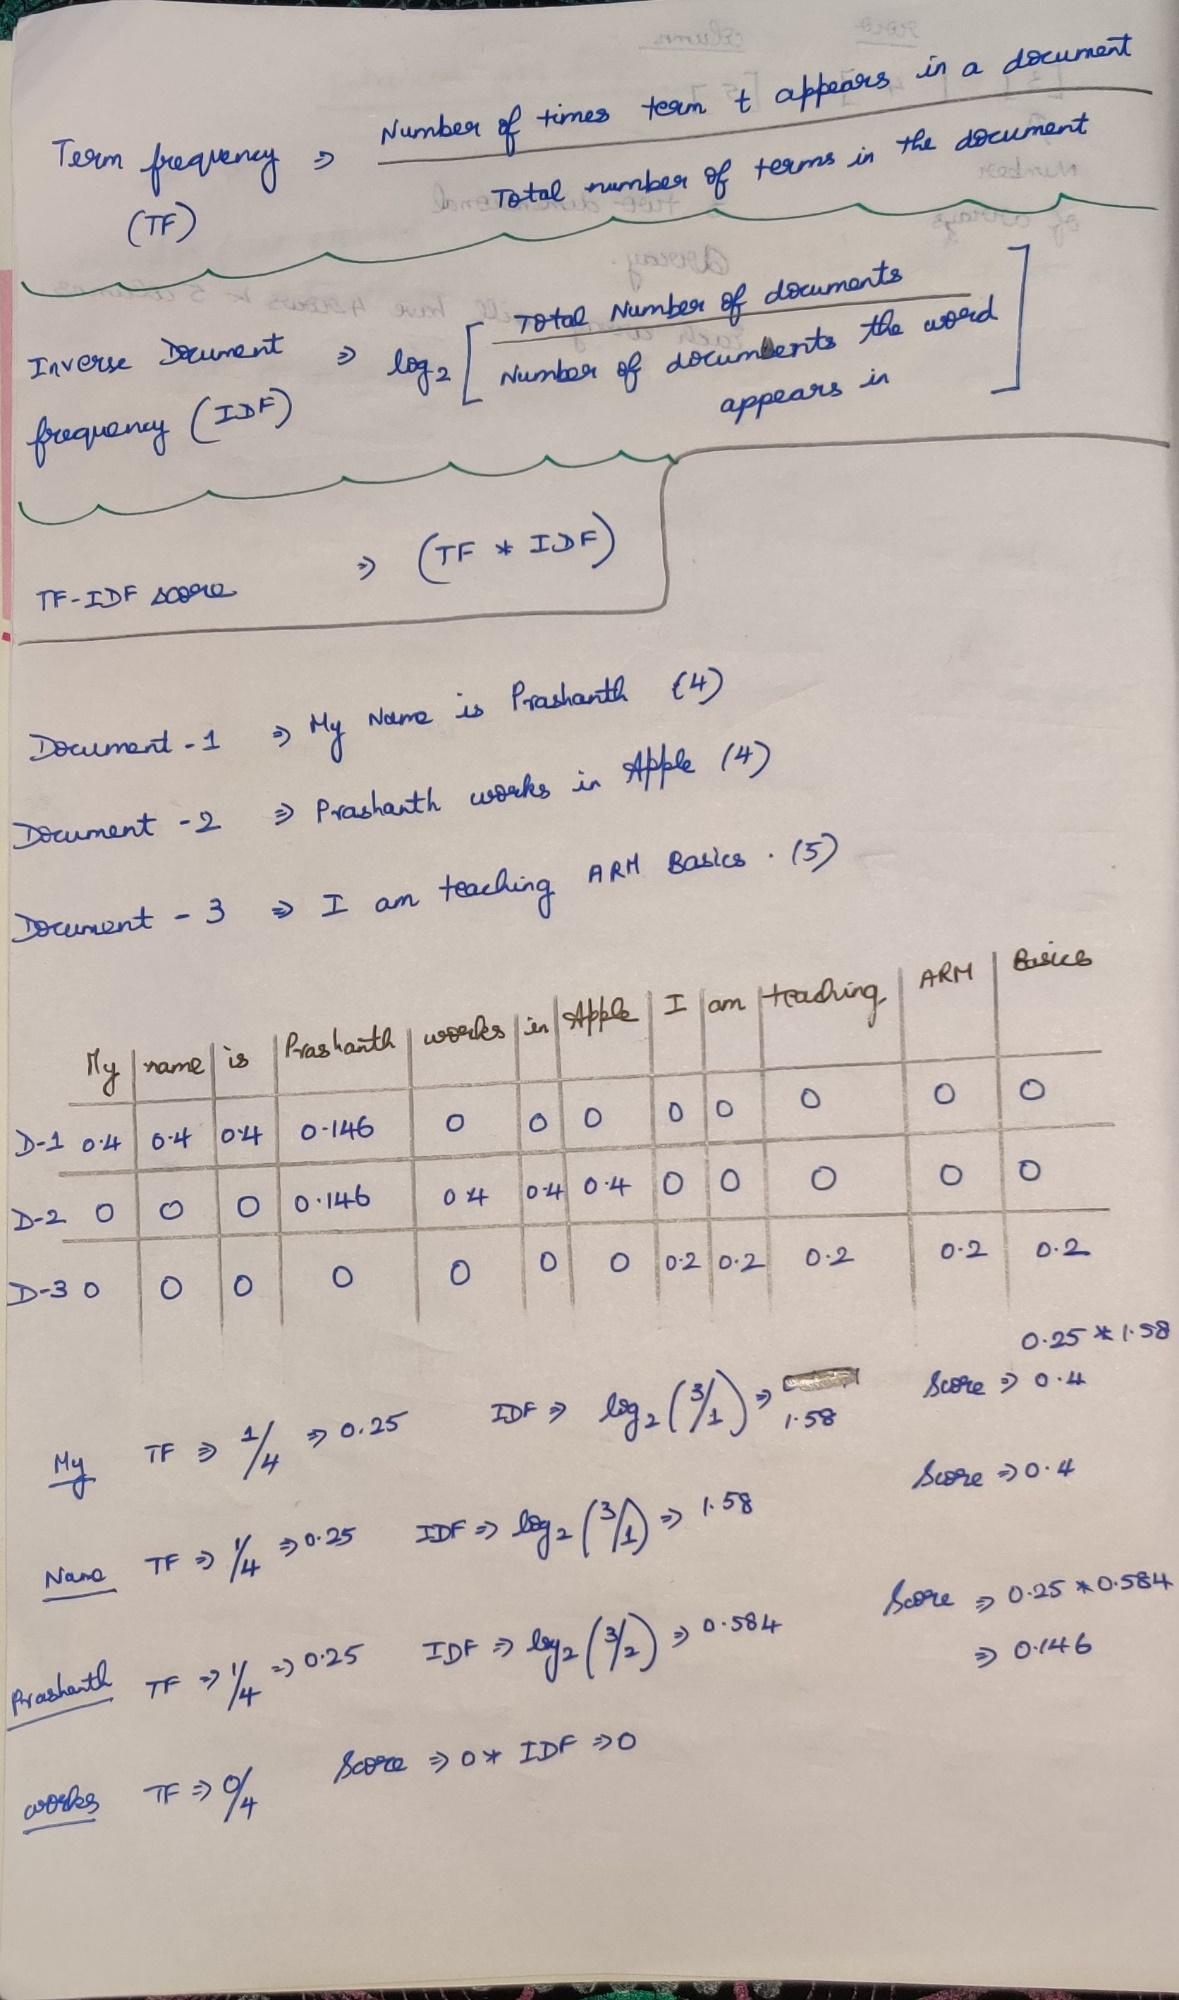 Number of times term t appears in a document
Term frequency ⇒
Total number of terms in the document
(TF)
Total Number of documents
Inverse Document ⇒ log2 [ Number of documents the word ]
frequency (IDF)
appears in
TF-IDF score ⇒ (TF * IDF)
Document - 1 ⇒ My Name is Prashanth (4)
Document - 2 ⇒ Prashanth works in Apple (4)
Document - 3 ⇒ I am teaching ARM Basics. (5)
My | name | is | Prashanth | works | in | Apple | I | am | teaching | ARM | Basics
D-1 0.4 0.4 0.4 0.146 0 0 0 0 0 0 0 0
D-2 0 0 0 0.146 0.4 0.4 0.4 0 0 0 0 0
D-3 0 0 0 0 0 0 0 0.2 0.2 0.2 0.2 0.2
0.25 * 1.58
My TF ⇒ 1/4 ⇒ 0.25 IDF ⇒ log2 (3/1) ⇒ 1.58 Score ⇒ 0.4
Name TF ⇒ 1/4 ⇒ 0.25 IDF ⇒ log2 (3/1) ⇒ 1.58 Score ⇒ 0.4
Prashanth TF ⇒ 1/4 ⇒ 0.25 IDF ⇒ log2 (3/2) ⇒ 0.584 Score ⇒ 0.25 * 0.584
⇒ 0.146
works TF ⇒ 0/4 Score ⇒ 0 * IDF ⇒ 0